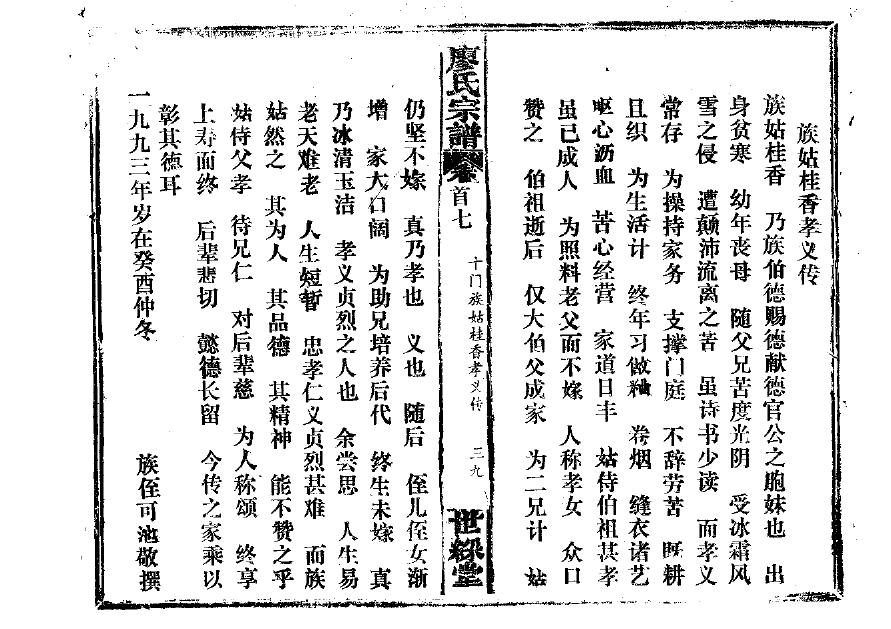 族姑桂香孝义传
族姑桂香　乃族伯德赐德献德官公之胞妹也　出
身贫寒　幼年丧母　随父兄苦度光阴　受冰霜风
雪之侵　遭颠沛流离之苦　虽诗书少读　而孝义
常存　为操持家务　支撑门庭　不辞劳苦　既耕
且织　为生活计　终年习做　卷烟　缝衣诸艺
呕心沥血　苦心经营　家道日丰　姑侍伯祖甚孝
虽已成人　为照料老父而不嫁　人称孝女　众口
赞之　伯祖逝后　仅大伯父成家　为二兄计　姑
廖氏宗譜
卷首七
十门族姑桂香孝义传
三九
世綵堂
仍坚不嫁　真乃孝也　义也　随后　侄儿侄女渐
增　家大口阔　为助兄培养后代　终生未嫁　真
乃冰清玉洁　孝义贞烈之人也　余尝思　人生易
老天难老　人生短暂　忠孝仁义贞烈甚难　而族
姑然之　其为人　其品德　其精神　能不赞之乎
姑侍父孝　待兄仁　对后辈慈　为人称颂　终享
上寿而终　后辈悲切　懿德长留　今传之家乘以
彰其德耳
一九九三年岁在癸酉仲冬
族侄可池敬撰